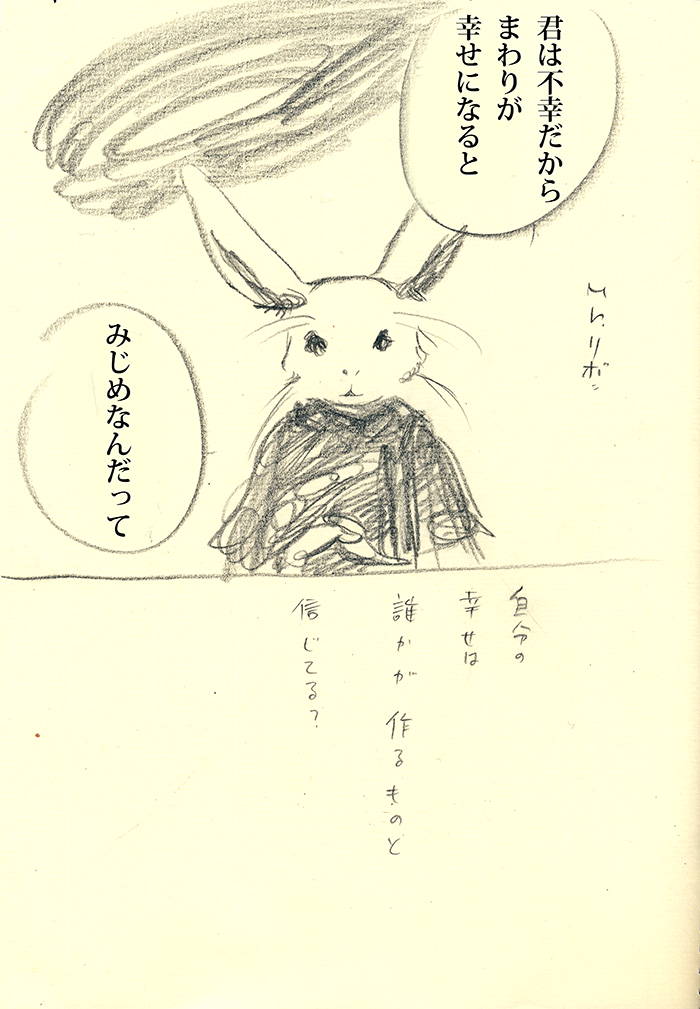 君は不幸だから
まわりが
幸せになると
Mr.リボン
みじめなんだって
自分の
幸せは
誰かが作るものと
信じてる？